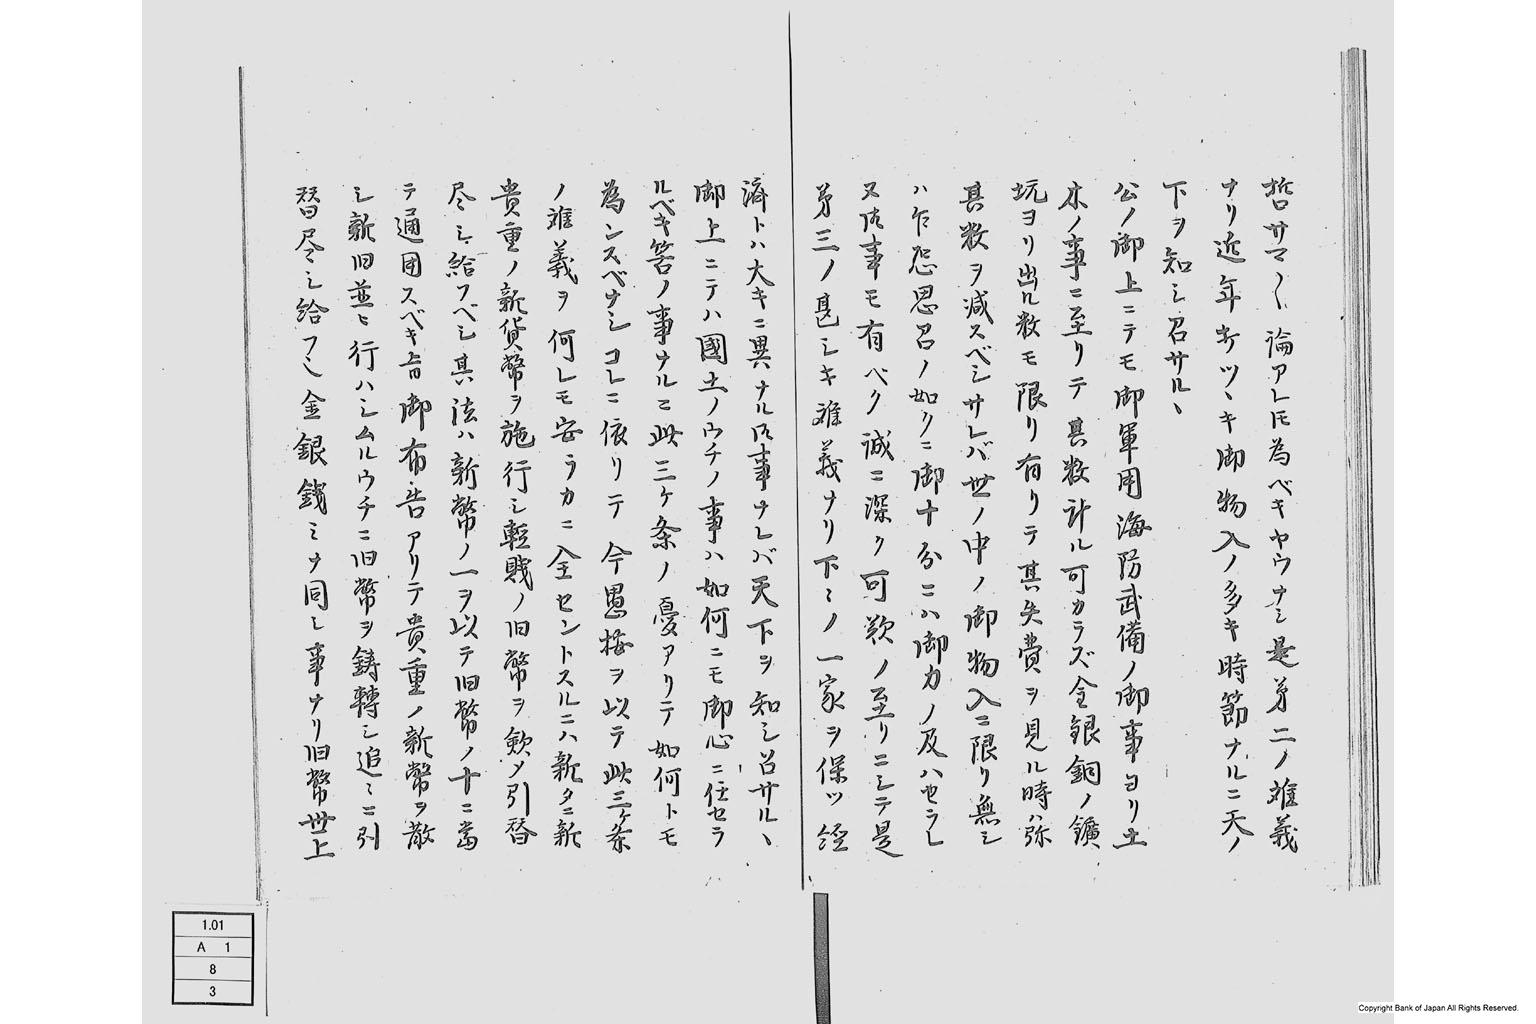 哲サマ〲論アレ𪜈為ベキヤウナシ是第二ノ難義
ナリ近年打ツヽキ御物入ノ多キ時節ナルニ天ノ
下ヲ知シ召サルヽ
公ノ御上ニテモ御軍用海防武備ノ御事ヨリ土
木ノ事ニ至リテ其数計ル可カラズ金銀銅ノ鑛
坑ヨリ出ル数モ限リ有リテ其失費ヲ見ル時ハ弥
其数ヲ減スベシサレバ世ノ中ノ御物入ニ限リ無シ
ハ乍恐思召ノ如クニ御十分ニハ御力ノ及ハセラレ
又御事モ有ベク誠ニ深ク可歎ノ至リニシテ是
第三ノ甚シキ難義ナリ下〻ノ一家ヲ保ツ経
済トハ大キニ異ナル御事ナレバ天下ヲ知シ召サルヽ
御上ニテハ國土ノウチノ事ハ如何ニモ御心ニ任セラ
ルベキ筈ノ事ナルニ此三ケ条ノ憂アリテ如何トモ
為ンスベナシコレニ依リテ今愚按ヲ以テ此三ケ条
ノ難義ヲ何レモ安ラカニ全セントスルニハ新タニ新
貴重ノ新貨幣ヲ施行シ軽賎ノ旧幣ヲ歛メ引替
尽シ給フベシ其法ハ新幣ノ一ヲ以テ旧幣ノ十ニ當
テ通用スベキ旨御布告アリテ貴重ノ新幣ヲ散
シ新旧並ヒ行ハシムルウチニ旧幣ヲ鋳轉シ追〻ニ引
替尽シ給フヘ金銀錢ミナ同シ事ナリ旧幣世上
1.01
A 1
8
3
Copyright Bank of Japan All Rights Reserved.